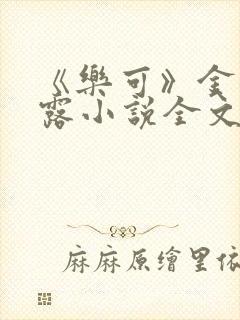 《樂可》金
露小說全文
麻麻原繪里依